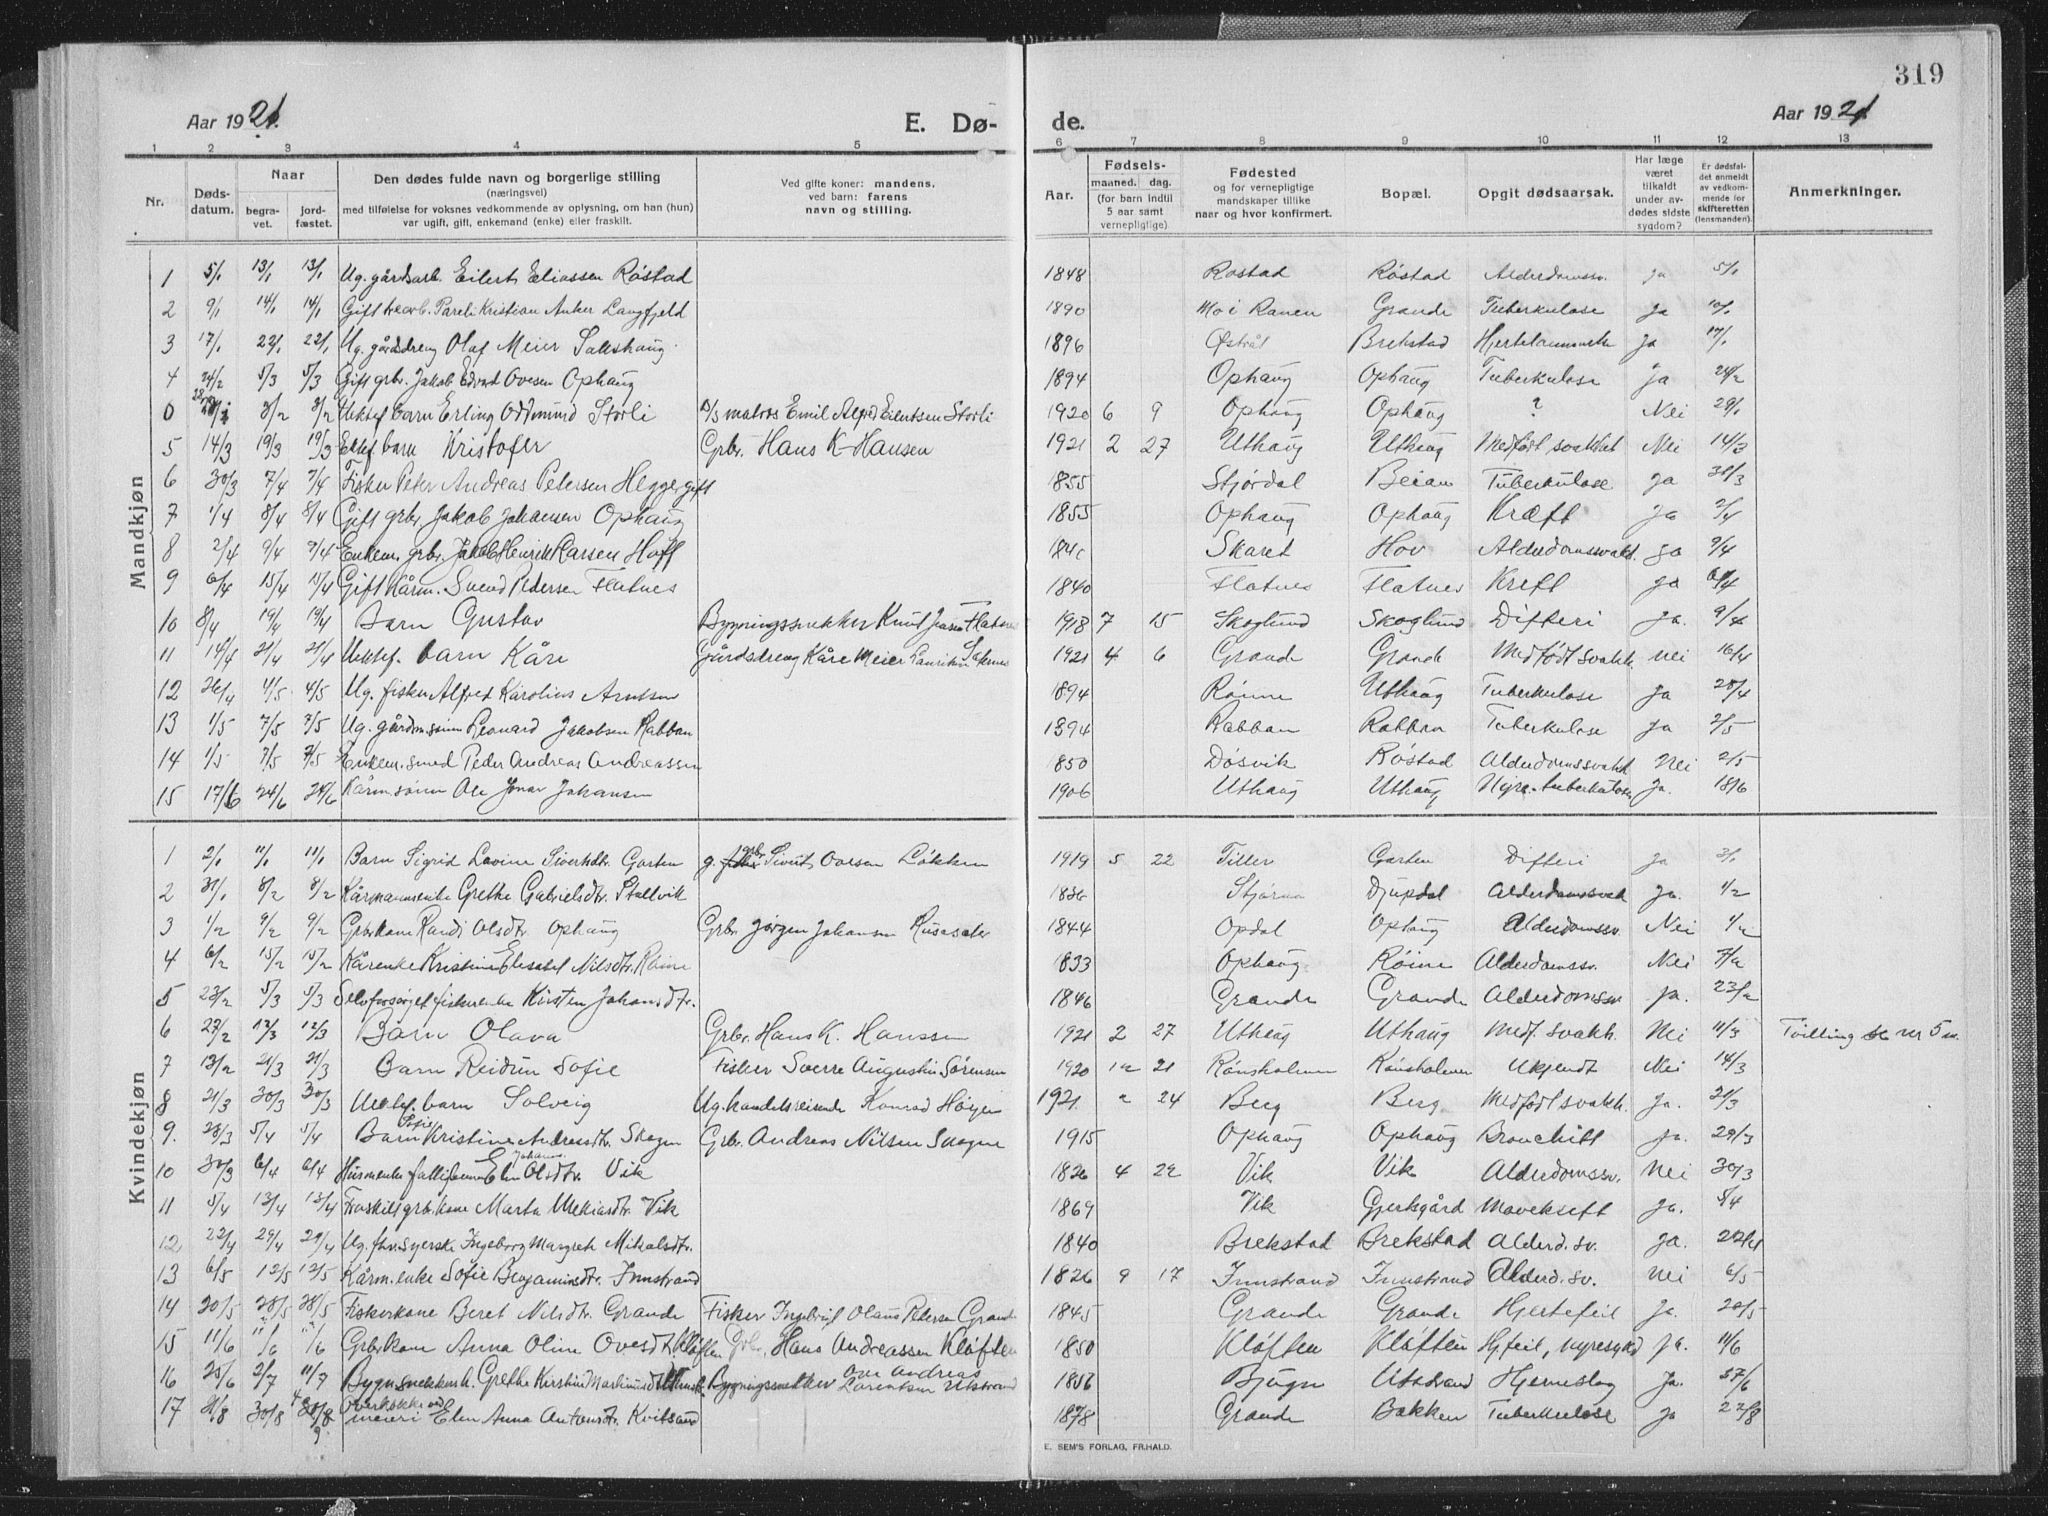 319
Aar 1921. E. Dø- de. Aar 1921
1 2 3 4 5 6 7 8 9 10 11 12 13
Nr. Døds-datum. Naar begra-vet. jord-fæstet. Den dødes fulde navn og borgerlige stilling (næringsvei) med tilføielse for voksnes vedkommende av oplysning, om han (hun) var ugift, gift, enkemand (enke) eller fraskilt. Ved gifte koner: mandens, ved barn: farens navn og stilling. Aar. Fødsels- maaned. dag. (for barn indtil 5 aar samt vernepligtige) Fødested og for vernepligtige mandskaper tillike naar og hvor konfirmert. Bopæl. Opgit dødsaarsak. Har læge været tilkaldt under av-dødes sidste sygdom? Er dødsfal-det anmeldt av vedkom-mende for skifteretten (lensmanden). Anmerkninger.
Mandkjøn
1 5/1 13/1 13/1 Ug. gårdsarb. Eilert Eliassen Røstad 1848 Røstad Røstad Alderdomssv. ja 5/1
2 9/1 14/1 14/1 Gift Pareli Kristian Anker Langfjeld 1890 Mo i Ranen Grande Tuberkulose Ja 10/1
3 17/1 22/1 22/1 Ug. gårdsdreng Olaf Meier Sakshaug 1896 Østrål Brekstad Ja 17/1
4 24/2 5/3 5/3 Gift grbr. Jakob Edvard Ovesen Ophaug 1894 Ophaug Ophaug Tuberkulose Ja 24/2
0 3/2 3/2 Uektef barn Erling Oddmund Storli matros Emil Alfred Eilertsen Storli 1920 6 9 Ophaug Ophaug ? Nei 29/1
5 14/3 19/3 19/3 Ektef barn Kristofer Grbr. Hans K Hansen 1921 2 27 Uthaug Uthaug Medfødt svakhet Nei 14/3
6 30/3 7/4 7/4 Fisker Peter Andreas Petersen Hegge gift 1855 Stjørdal Beian Tuberkulose Ja 30/3
7 1/4 8/4 8/4 Gift grbr. Jakob Johansen Ophaug 1855 Ophaug Ophaug Kræft Ja 2/4
8 2/4 9/4 9/4 Enkem. grbr. Jakob Henrik Larsen Hoff Skaret Hov Alderdomssvakh. ja 2/4
9 6/4 15/4 15/4 Gift Kårm. Svend Pedersen Flatnes 1840 Flatnes Flatnes Kreft ja 6/4
10 8/4 19/4 19/4 Barn Gustav Bygningssnekker Knut Jensen 1918 7 15 Skoglund Skoglund Difteri ja. 9/4
11 14/4 21/4 21/4 Uektef. barn Kåre Gårdsdreng Kåre Meier 1921 4 6 Grande Grande Medfødt svakh. nei 16/4
12 26/4 4/5 4/5 Ug. fisker Alfred Karolius Arntsen 1894 Røinne Uthaug Tuberkulose ja 28/4
13 1/5 7/5 7/5 Ug. gårdm.sønn Leonard Jakobsen Rabban 1894 Rabban Rabban Tuberkulose Ja 2/5
14 1/5 7/5 7/5 Enkem. smed Peder Andreas Andreassen 1850 Døsvik Røstad Alderdomssvakh Nei 2/5
15 17/6 24/6 24/6 Kårm.sønn Ole Johansen 1906 Uthaug Uthaug Ja. 18/6
Kvindekjøn
1 2/1 11/1 11/1 Barn Sigrid Lovine Sivertsdtr. Garten g. grbr. Sivert Ovesen Løkken 1919 5 22 Tiller Garten Difteri ja 3/1
2 31/1 8/2 8/2 Kårmannsenke Grethe Gabrielsdtr. Stallvik 1836 Stjørna Djupdal Alderdomssvakh Ja. 1/2
3 1/2 9/2 9/2 Grbr.kone Randi Olsdtr. Ophaug Grbr. Jørgen Johansen 1844 Opdal Ophaug Alderdomssv. Nei 1/2
4 6/2 15/2 15/2 Kårenke Kristine Elisabet Nilsdtr. Røine 1833 Ophaug Røine Alderdomssv. Nei 7/2
5 23/2 5/3 5/3 Selvforsørget fiskerenke Kirsten Johansdtr. 1846 Grande Grande Alderdomssv ja. 23/2
6 27/2 12/3 12/3 Barn Olava Grbr. Hans K. Hanssen 1921 2 27 Uthaug Uthaug Medf. svakh. Nei 11/3 Tvilling nr 5 m.
7 13/2 21/3 21/3 Barn Reidun Sofie Fisker Sverre Augustin Sørensen 1920 12 21 Rønsholmen Rønsholmen Ukjendt Nei 14/3
8 21/3 30/3 30/3 Uektef. barn Solveig Ug. handelsreisende Konrad 1921 2 24 Berg Berg Medfødt svakh. Ja. 21/3
9. 28/3 5/4 5/4 Barn Kristine Sofie Andreasdtr. Skagen Grbr. Andreas Nilsen Skagen 1915 Ophaug Ophaug Bronchitt Ja. 29/3
10 30/3 6/4 6/4 Husmenke Elen Johanna Olsdtr. Vik 1826 4 22 Vik Vik Alderdomssv. Nei 30/3
11 5/4 13/4 13/4 Fraskilt grbr.kone Marta Vik 1869 Vik Gjerksgård Maveksæft Ja. 5/4
12 22/4 29/4 29/4 Ug. fhv. syerske Ingeborg Margrete Mikalsdtr. 1840 Brekstad Brekstad Alderd. sv. Ja. 22/4
13 6/5 12/5 12/5 Kårm.enke Sofie Benjaminsdtr. Innstrand 1826 9 17 Innstrand Innstrand Alderd. sv. Nei 6/5
14 20/5 28/5 28/5 Fiskerkone Beret Nilsdtr. Grande Fisker Ingebrigt Olaus Petersen Grande 1845 Grande Grande Hjertefeil Ja. 20/5
15 11/6 11/6 Grbr.kone Anna Oline Ovesdtr Kløften Grbr. Hans Andreassen Kløften 1850 Kløften Kløften Hj.feil, nyresykd ja. 11/6
16 25/6 2/7 11/7 Bygn.snekkerk. Grethe Kirstine Martinusdtr Bygningssnekker Ole Andreas Lorentsen Utstrand 1856 Bjugn Utstrand Hjerneslag Ja. 27/6
17 21/8 30/8 Overkokke ved meieri Elen Anna Antonsdtr. Kvitsand 1878 Grande Bakken Tuberkulose Ja 22/8
E. SEM'S FORLAG, FR.HALD.